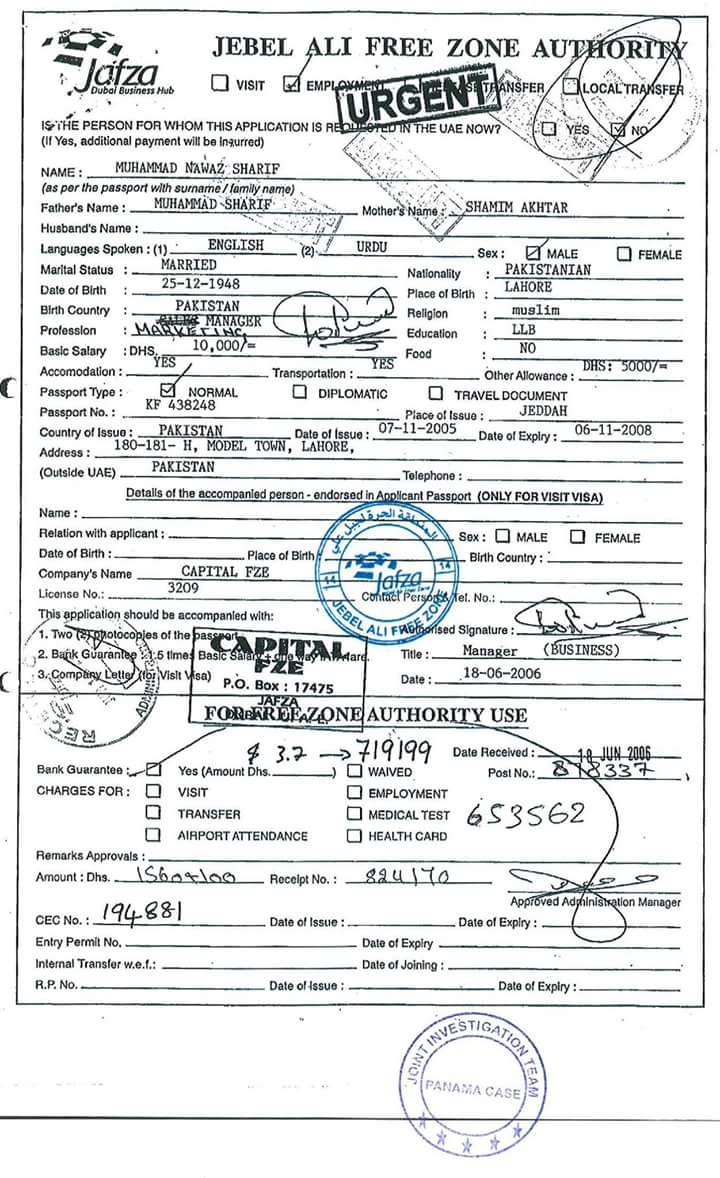 Jafza
Dubai Business Hub
JEBEL ALI FREE ZONE AUTHORITY
VISIT EMPLOYMENT TRANSFER LOCAL TRANSFER
URGENT
IS THE PERSON FOR WHOM THIS APPLICATION IS REQUESTED IN THE UAE NOW? YES NO
(If Yes, additional payment will be inqurred)
NAME : MUHAMMAD NAWAZ SHARIF
(as per the passport with surname / family name)
Father's Name : MUHAMMAD SHARIF Mother's Name : SHAMIM AKHTAR
Husband's Name :
Languages Spoken : (1) ENGLISH (2) URDU Sex : MALE FEMALE
Marital Status : MARRIED Nationality : PAKISTANIAN
Date of Birth : 25-12-1948 Place of Birth : LAHORE
Birth Country : PAKISTAN Religion : muslim
Profession : MARKETING MANAGER Education : LLB
Basic Salary : DHS. 10,000/= Food : NO
Accomodation : YES Transportation : YES Other Allowance : DHS: 5000/=
Passport Type : NORMAL DIPLOMATIC TRAVEL DOCUMENT
Passport No. : KF 438248 Place of Issue : JEDDAH
Country of Issue : PAKISTAN Date of Issue : 07-11-2005 Date of Expiry : 06-11-2008
Address : 180-181- H, MODEL TOWN, LAHORE,
(Outside UAE) PAKISTAN Telephone :
Details of the accompanied person - endorsed in Applicant Passport (ONLY FOR VISIT VISA)
Name :
Relation with applicant : Sex : MALE FEMALE
Date of Birth : Place of Birth : Birth Country :
Company's Name CAPITAL FZE
License No.: 3209 Contact Person & Tel. No.:
المنطقة الحرة لجبل علي
14 Jafza 14
JEBEL ALI FREE ZONE
This application should be accompanied with: Authorised Signature :
1. Two (2) photocopies of the passport
2. Bank Guarantee 1.5 times Basic Salary + one way Air fare. Title : Manager (BUSINESS)
3. Company Letter (for Visit Visa) Date : 18-06-2006
CAPITAL
FZE
P.O. Box : 17475
JAFZA
DUBAI U.A.E.
FOR FREE ZONE AUTHORITY USE
$ 3.7 → 719199 Date Received : 18 JUN 2006
Bank Guarantee: Yes (Amount Dhs. ) WAIVED Post No.: 898337
CHARGES FOR : VISIT EMPLOYMENT
TRANSFER MEDICAL TEST 653562
AIRPORT ATTENDANCE HEALTH CARD
Remarks Approvals :
Amount : Dhs. Receipt No. : 824170
Approved Administration Manager
CEC No. : 194881 Date of Issue : Date of Expiry :
Entry Permit No. Date of Expiry
Internal Transfer w.e.f.: Date of Joining :
R.P. No. Date of Issue : Date of Expiry :
JOINT INVESTIGATION TEAM
PANAMA CASE